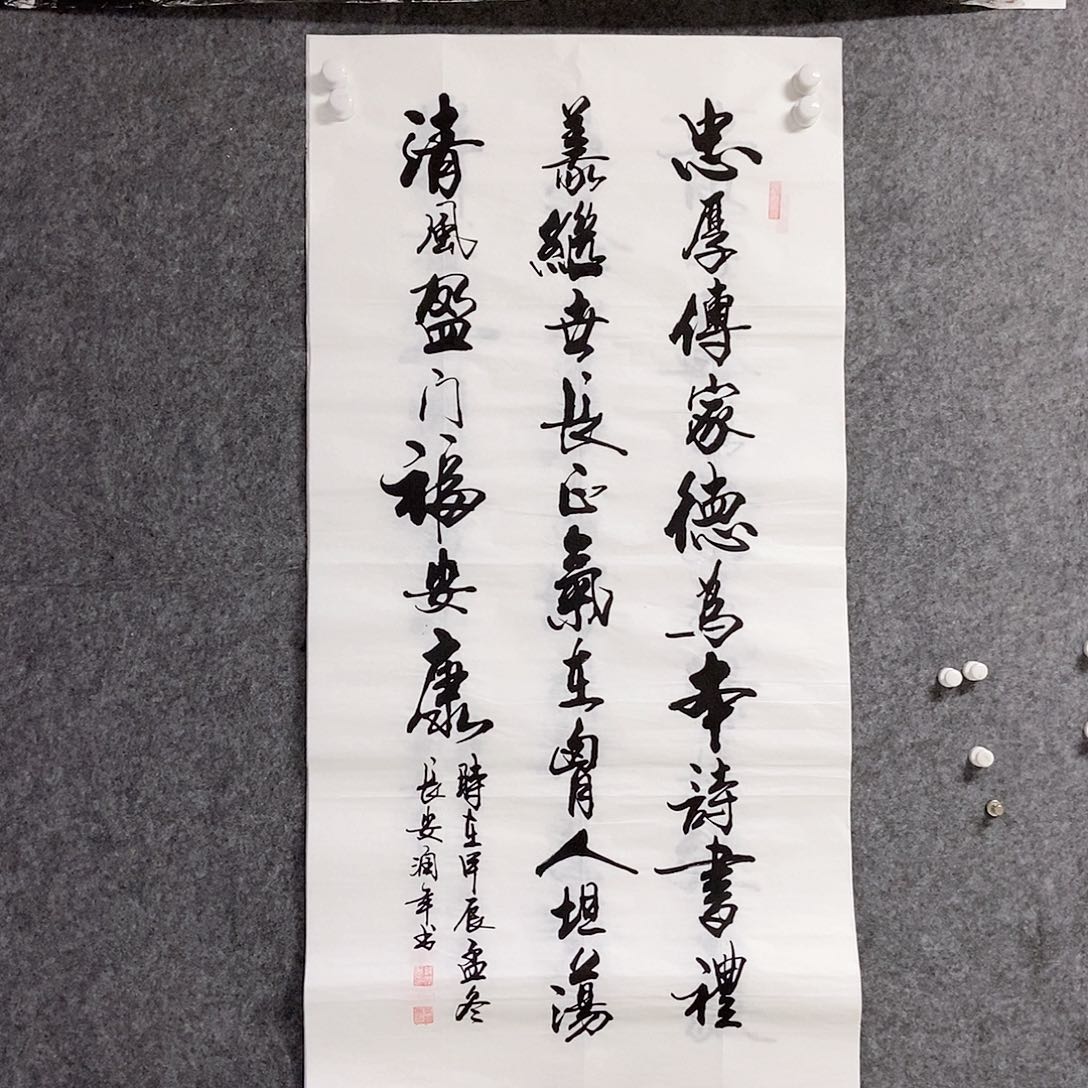 忠厚傳家德為本詩書禮
義繼世長正氣在胷人坦蕩
清風盈门福安康
時在甲辰孟冬
長安潤年书